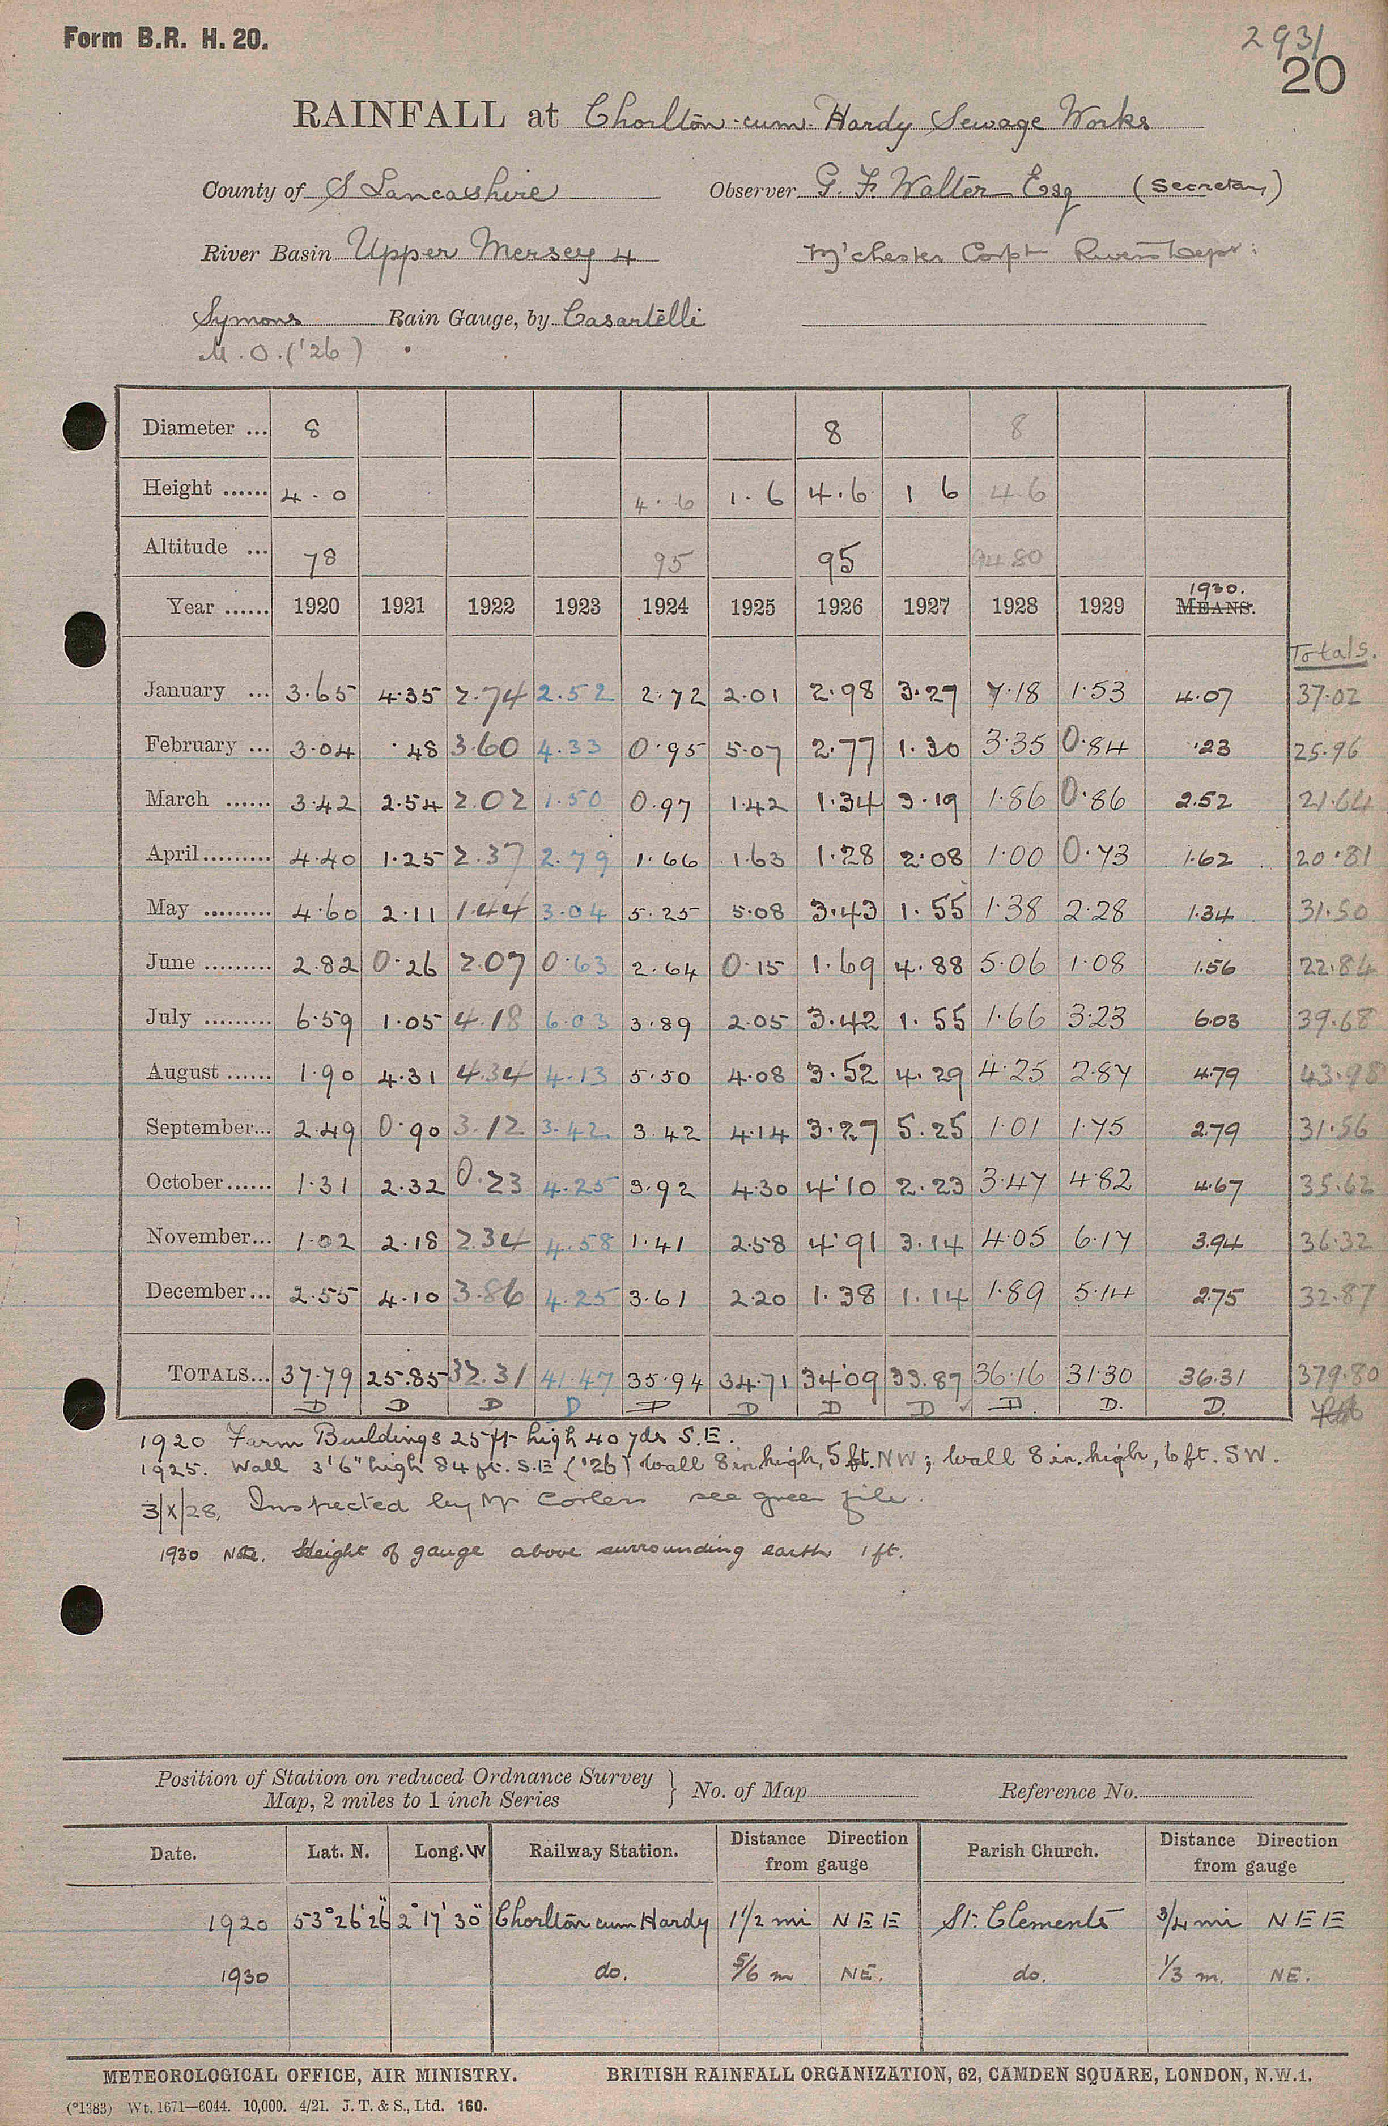 Form B.R. H. 20.
2931
20
RAINFALL at Chorlton-cum-Hardy Sewage Works
County of S Lancashire Observer G. F. Walter Esq (Secretary)
River Basin Upper Mersey 4 M'chester Corpn Rivers Dept:
Symons Rain Gauge, by Casartelli
M.O. ('26)
Diameter ... 8 8 8
Height ...... 4·0 4·6 1·6 4·6 1 6 4·6
Altitude ... 78 95 95 94 80
Year ...... 1920 1921 1922 1923 1924 1925 1926 1927 1928 1929 1930. MEANS.
Totals.
January ... 3·65 4·35 2·74 2·52 2·72 2·01 2·98 3·27 7·18 1·53 4·07 37·02
February ... 3·04 ·48 3·60 4·33 0·95 5·07 2·77 1·30 3·35 0·84 ·23 25·96
March ...... 3·42 2·54 2·02 1·50 0·97 1·42 1·34 3·19 1·86 0·86 2·52 21·64
April ......... 4·40 1·25 2·37 2·79 1·66 1·63 1·28 2·08 1·00 0·73 1·62 20·81
May ......... 4·60 2·11 1·44 3·04 5·25 5·08 3·43 1·55 1·38 2·28 1·34 31·50
June ......... 2·82 0·26 2·07 0·63 2·64 0·15 1·69 4·88 5·06 1·08 1·56 22·84
July ......... 6·59 1·05 4·18 6·03 3·89 2·05 3·42 1·55 1·66 3·23 6·03 39·68
August ...... 1·90 4·31 4·34 4·13 5·50 4·08 3·52 4·29 4·25 2·87 4·79 43·98
September... 2·49 0·90 3·12 3·42 3·42 4·14 3·27 5·25 1·01 1·75 2·79 31·56
October ...... 1·31 2·32 0·23 4·25 3·92 4·30 4·10 2·23 3·47 4·82 4·67 35·62
November... 1·02 2·18 2·34 4·58 1·41 2·58 4·91 3·14 4·05 6·17 3·94 36·32
December... 2·55 4·10 3·86 4·25 3·61 2·20 1·38 1·14 1·89 5·14 2·75 32·87
TOTALS... 37·79 25·85 32·31 41·47 35·94 34·71 34·09 33·87 36·16 31·30 36·31 379·80
D D D D D D D D ✓ D. D. D.
1920 Farm Buildings 25 ft high 40 yds S.E.
1925. Wall 3'6" high 84 ft. S.E ('26) Wall 8 in high, 5 ft. NW; wall 8 in. high, 6 ft. SW.
3/X/28, Inspected by Mr Corless see green file.
1930 Note. Height of gauge above surrounding earth 1 ft.
Position of Station on reduced Ordnance Survey
Map, 2 miles to 1 inch Series } No. of Map Reference No.
Date. Lat. N. Long. W Railway Station. Distance Direction from gauge Parish Church. Distance Direction from gauge
1920 53°26'26" 2°17'30" Chorlton cum Hardy 1 1/2 mi N E E St. Clements 3/4 mi N E E
1930 do. 5/6 m NE. do. 1/3 m. NE.
METEOROLOGICAL OFFICE, AIR MINISTRY. BRITISH RAINFALL ORGANIZATION, 62, CAMDEN SQUARE, LONDON, N.W.1.
(*1383) Wt. 1671—6044. 10,000. 4/21. J. T. & S., Ltd. 160.